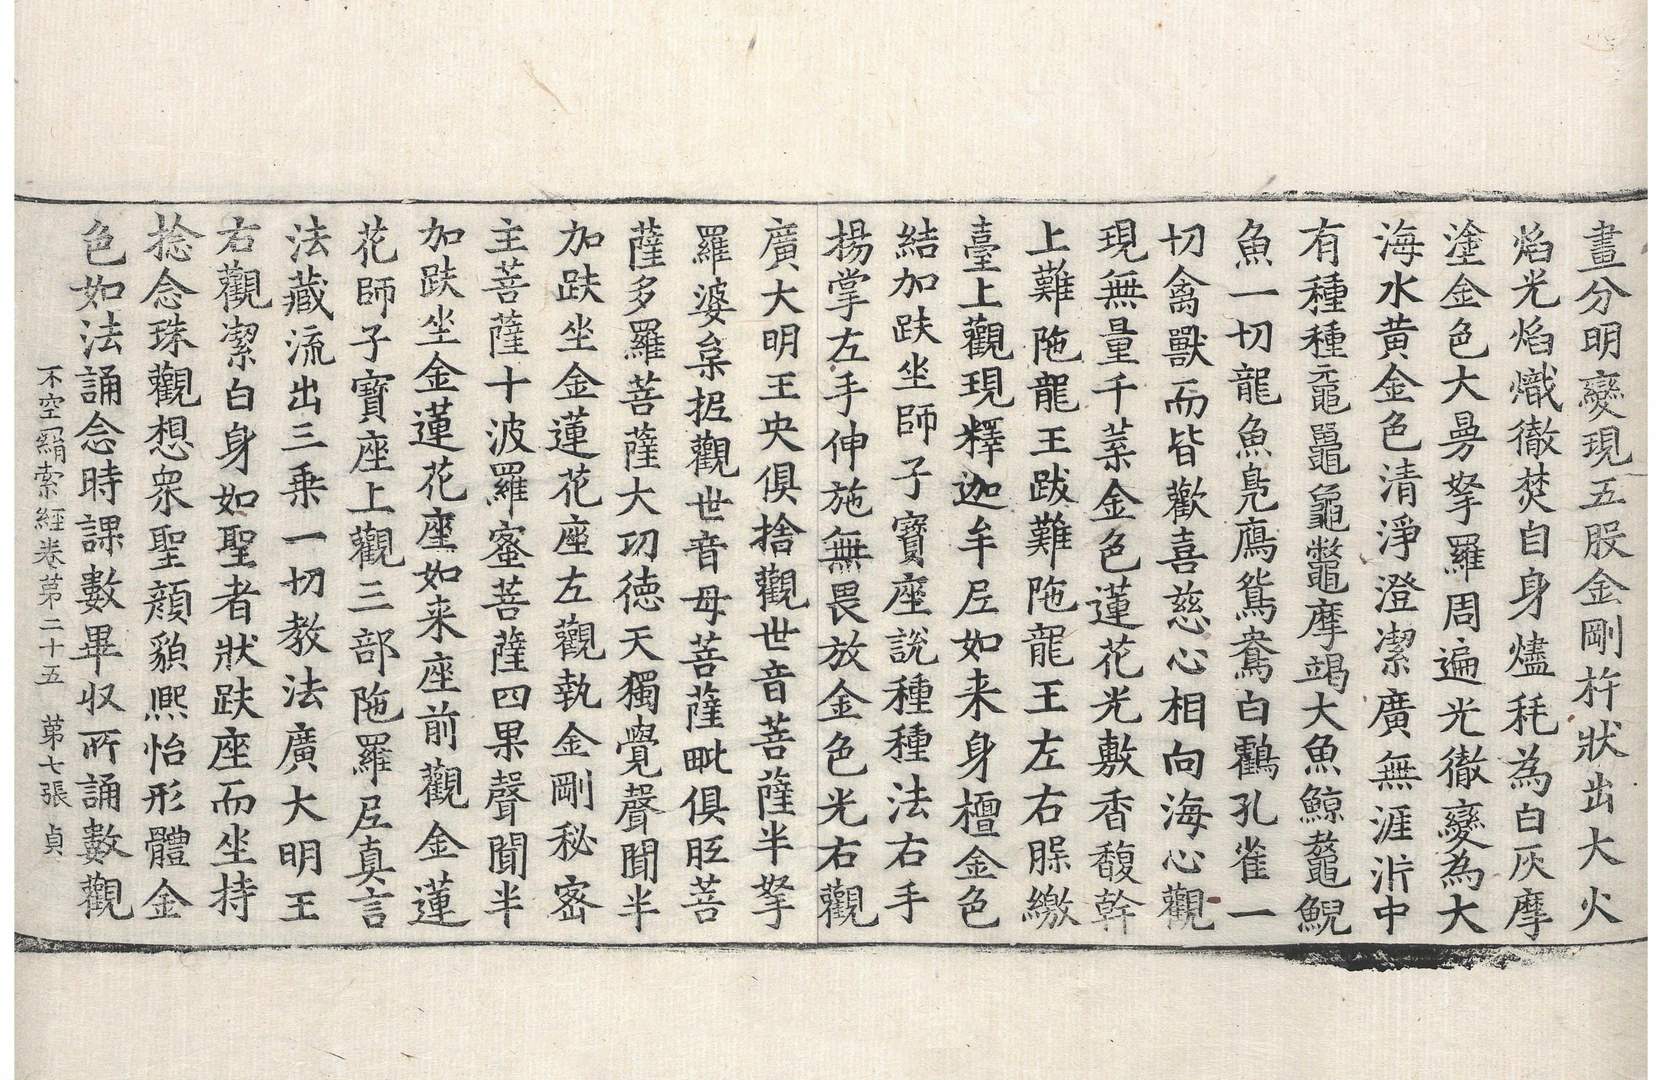 畫分明變現五股金剛杵狀出大火
焰光焰熾徹焚自身燼秏為白灰摩
塗金色大曼拏羅周遍光徹變為大
海水黃金色清淨澄潔廣無涯泝中
有種種黿鼉龜鼈摩竭大魚鯨鼇鯢
魚一切龍魚鳧鴈鴛鴦白鸖孔雀一
切禽獸而皆歡喜慈心相向海心觀
現無量千葉金色蓮花光敷香馥幹
上難陁龍王跋難陁龍王左右騄繳
臺上觀現釋迦牟𡰱如来身檀金色
結加趺坐師子寳座說種種法右手
揚掌左手伸施無畏放金色光右觀
廣大明王央俱捨觀世音菩薩半拏
羅婆枲抳觀世音母菩薩毗俱胝菩
薩多羅菩薩大㓛徳天獨覺聲聞半
加趺坐金蓮花座左觀執金剛秘密
主菩薩十波羅蜜菩薩四果聲聞半
加趺坐金蓮花座如来座前觀金蓮
花師子寳座上觀三部陁羅𡰱真言
法藏流出三乗一切教法廣大明王
右觀潔白身如聖者狀趺座而坐持
捻念珠觀想衆聖顔貌熈怡形體金
色如法誦念時課數畢収所誦數觀
不空羂索經卷第二十五　第七張　貞